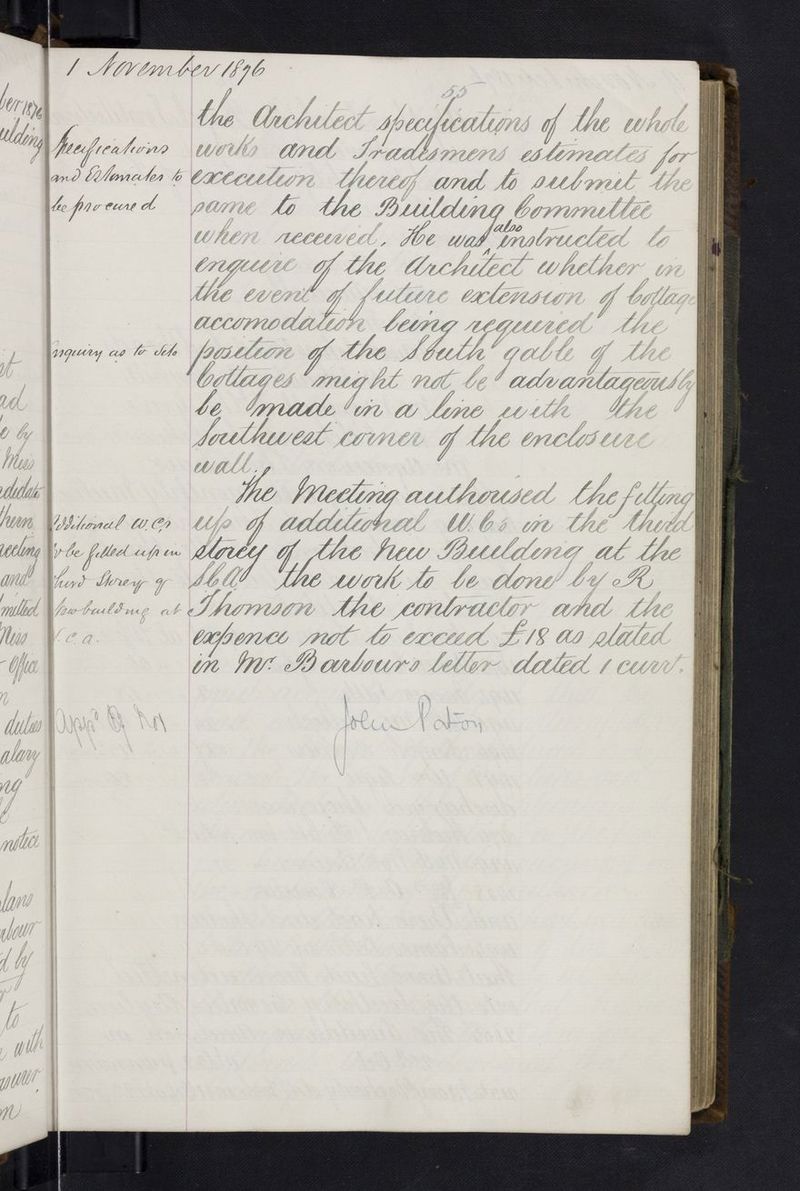 1 November 1876
55
the Architect specifications of the whole
works and Tradesmens estimates for
execution thereof and to submit the
same to the Building Committee
when received. He was also instructed to
enquire of the Architect whether in
the event of future extension of Cottage
accomodation being required the
position of the South gable of the
Cottages might not be advantageously
be made in a line with the
Southwest corner of the enclosure
wall.
The Meeting authorised the fitting
up of additional W.Cs in the third
storey of the New Building at the
the work to be done by R
Thomson the contractor and the
expence not to exceed £18 as stated
in Mr. Barbours letter dated 1 currt.
Specifications
and Estimates to
be procured
Enquiry as to
Additional W.Cs
to be fitted up in
third Storey of
New building at
John Paton
ber 1876
uilding
st
ad
e by
Miss
ndidate
thern
eeting
and
mitted
Miss
office
n
duties
alary
ng
notice
lans
rbour
d by
to
with
asurer
m